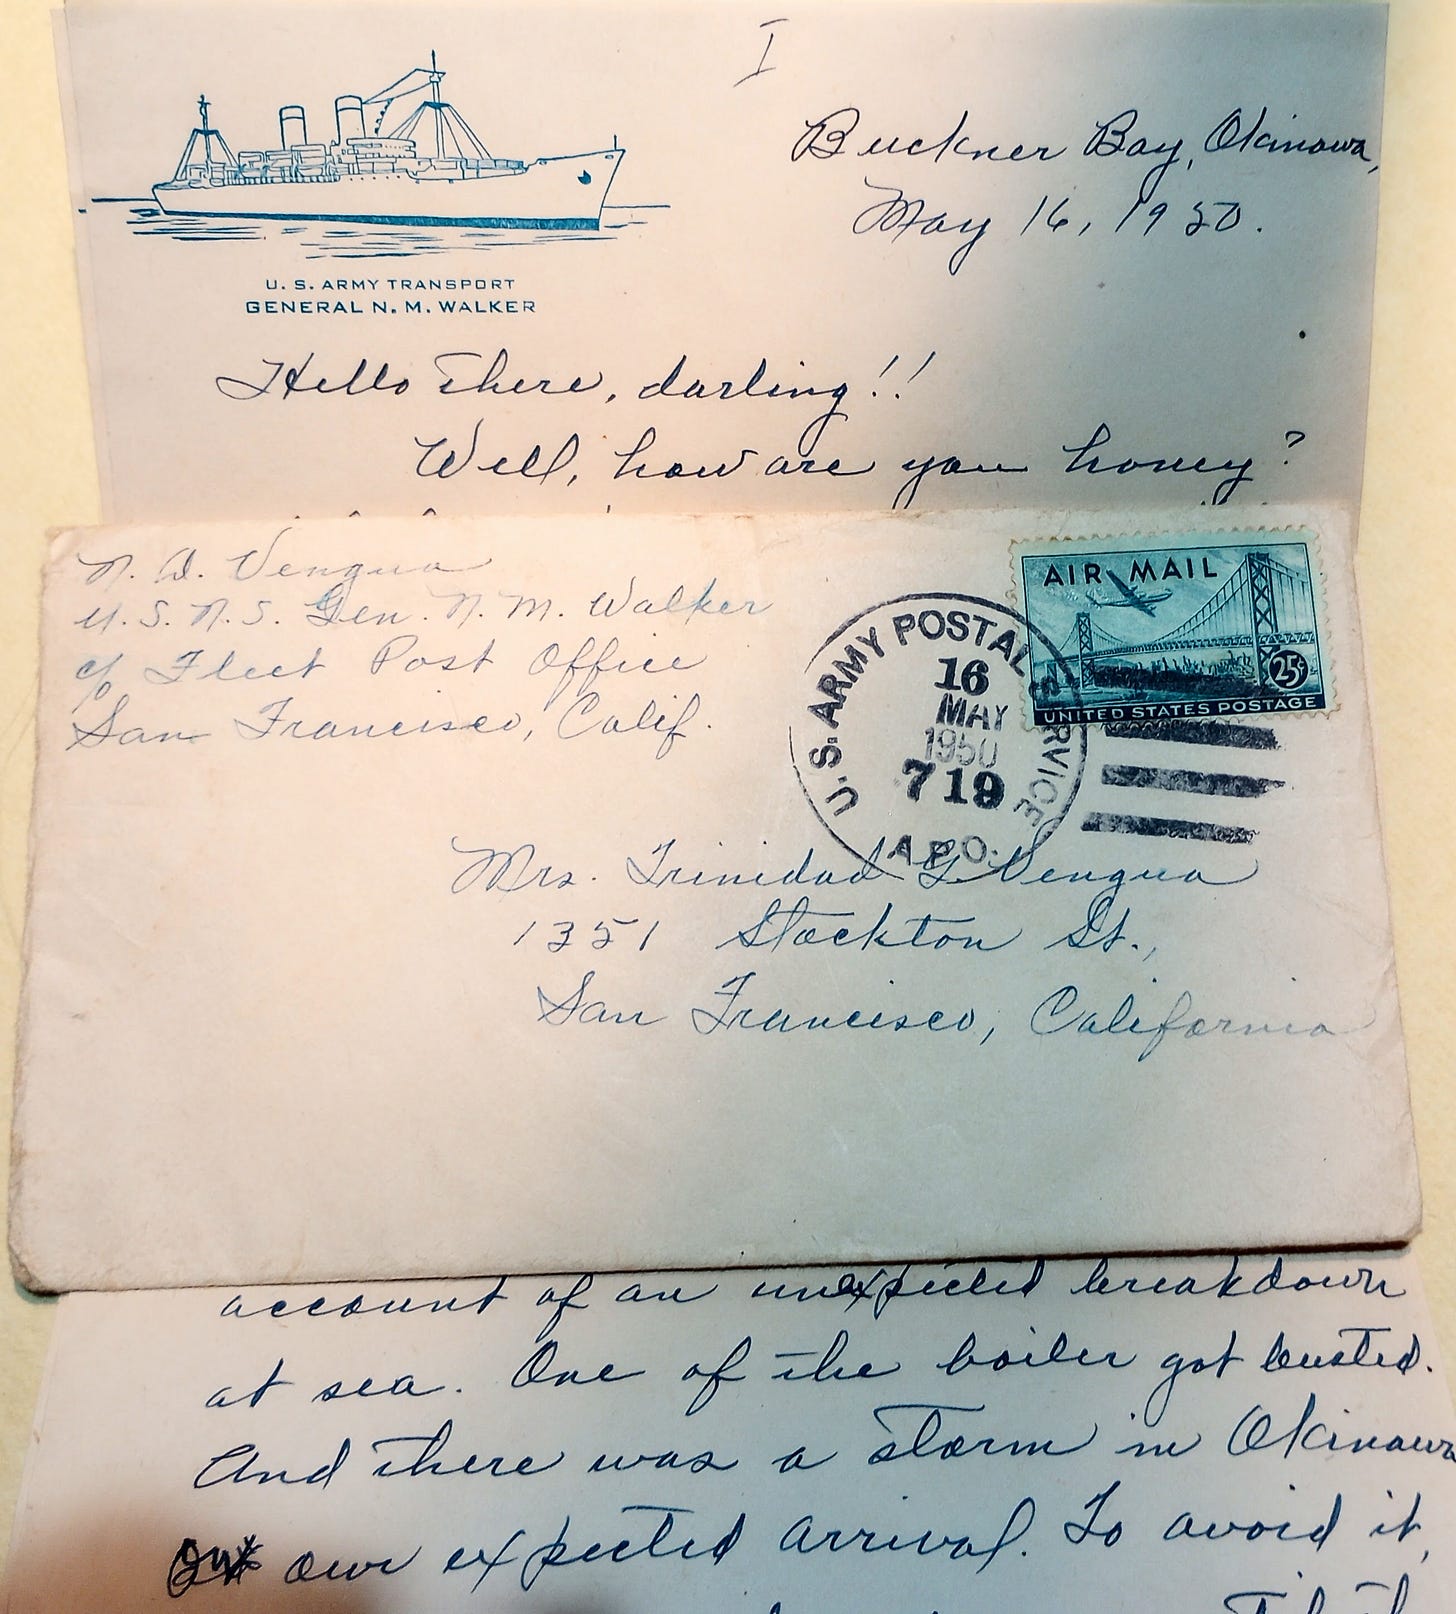 I
Buckner Bay, Okinawa,
May 16, 1950.
U. S. ARMY TRANSPORT
GENERAL N. M. WALKER
Hello there, darling!!
Well, how are you honey?
N. D. Vengua
U. S. N. S. Gen. N. M. Walker
c/o Fleet Post Office
San Francisco, Calif.
U.S. ARMY POSTAL SERVICE
16
MAY
1950
719
A.P.O.
AIR MAIL
25¢
UNITED STATES POSTAGE
Mrs. Trinidad G. Vengua
1351 Stockton St.,
San Francisco, California
account of an unexpected breakdown
at sea. One of the boiler got busted.
And there was a storm in Okinawa
our expected arrival. To avoid it,